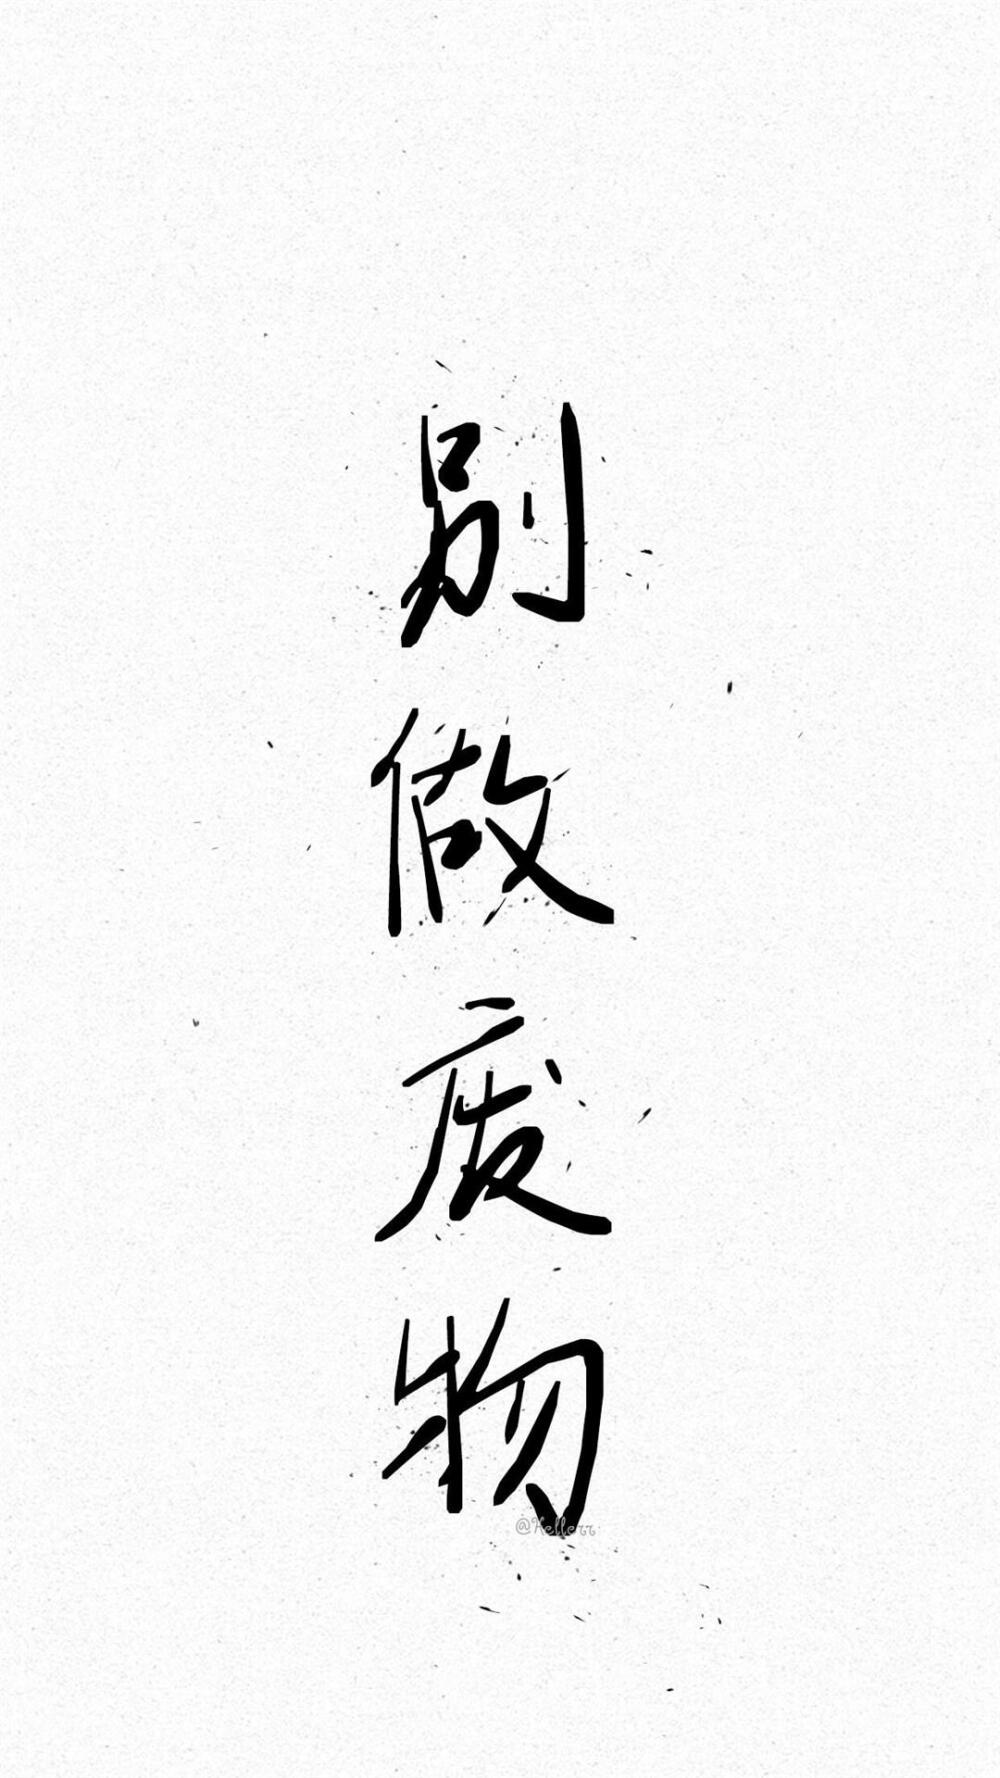 别做废物
@Kellerr